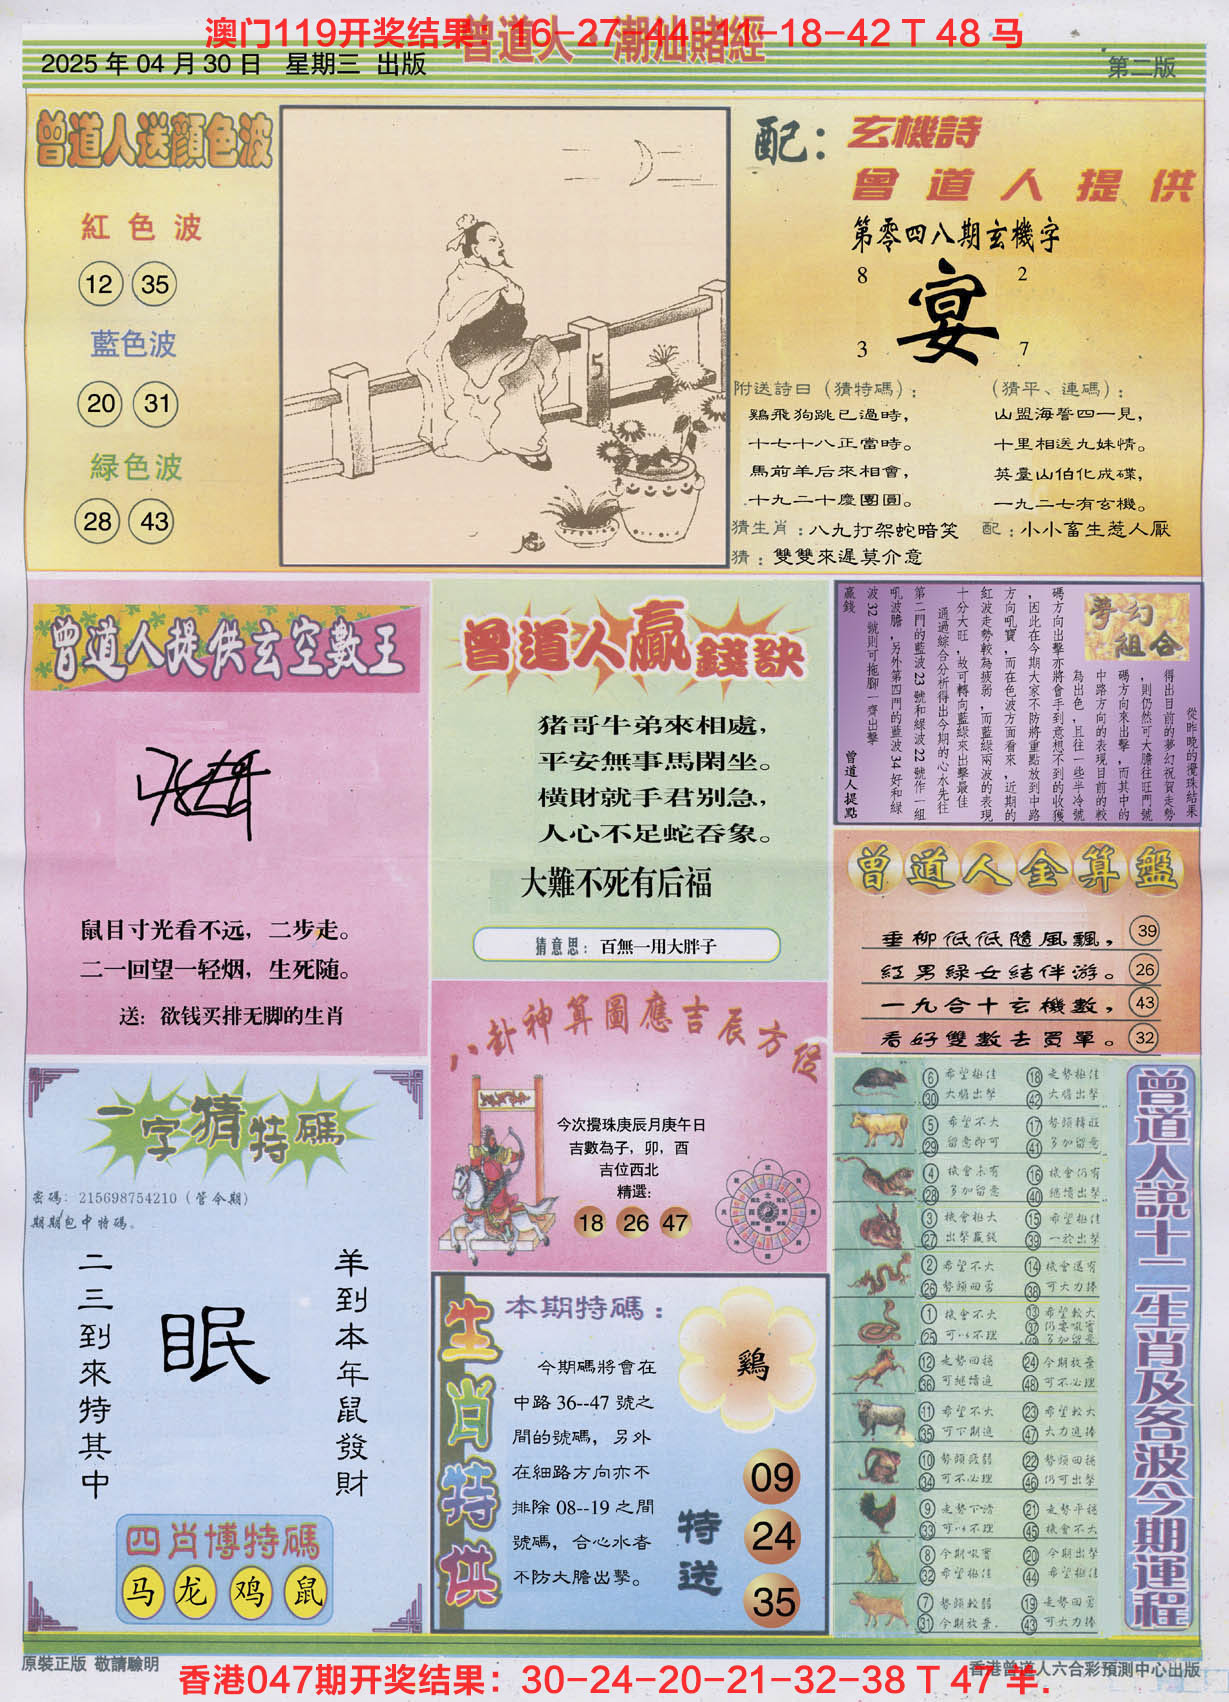 澳门119开奖结果：16-27-44-11-18-42 T 48 马
曾道人 潮汕賭經
2025 年 04 月 30 日 星期三 出版
第二版
曾道人送顏色波
紅色波
12 35
藍色波
20 31
緑色波
28 43
5
配：
玄機詩
曾道人提供
第零四八期玄機字
8 2
宴
3 7
附送詩曰（猜特碼）：
鷄飛狗跳已過時，
十七十八正當時。
馬前羊后來相會，
十九二十慶團圓。
（猜平、連碼）：
山盟海誓四一見，
十里相送九妹情。
英臺山伯化成碟，
一九二七有玄機。
猜生肖：八九打架蛇暗笑
配：小小畜生惹人厭
猜：雙雙來遲莫介意
曾道人提供玄空數王
鼠目寸光看不远，二步走。
二一回望一轻烟，生死随。
送：欲钱买排无脚的生肖
曾道人贏錢訣
猪哥牛弟來相處，
平安無事馬閑坐。
橫財就手君别急，
人心不足蛇吞象。
大難不死有后福
猜意思：百無一用大胖子
夢幻組合
從昨晚的攪珠結果
得出目前的夢幻祝賀走勢
，則仍然可大膽往旺門號
碼方向來出擊，而其中的
中路方向的表現目前的較
為出色，且往一些半冷號
碼方向出擊亦將會手到意想不到的收獲
，因此在今期大家不防將重點放到中路
方向吼寶，而在色波方面看來，近期的
紅波走勢較為疲弱，而藍綠兩波的表現
十分大旺，故可轉向藍綠來出擊最佳
通過綜合分析得出今期的心水先往
第二門的藍波 23 號和綠波 22 號作一組
吼波膽，另外第四門的藍波 34 好和綠
波 32 號則可拖腳一齊出擊
贏錢
曾道人提點
曾道人金算盤
垂柳低低隨風飄， 39
紅男緑女結伴游。 26
一九合十玄機數， 43
看好雙數去買單。 32
八卦神算圖應吉辰方位
今次攪珠庚辰月庚午日
吉數為子，卯，酉
吉位西北
精選：
18 26 47
一字猜特碼
密碼：215698754210（管今期）
期期包中特碼。
羊到本年鼠發財
眠
二三到來特其中
四肖博特碼
马 龙 鸡 鼠
生肖特供
本期特碼：
鷄
今期碼將會在
中路 36--47 號之
間的號碼，另外
在細路方向亦不
排除 08--19 之間
號碼，合心水者
不防大膽出擊。
特送
09
24
35
曾道人說十二生肖及各波今期運程
6 希望極佳 18 走勢極佳
30 大膽出擊 42 大膽出擊
5 希望不大 17 勢頭轉旺
29 留意即可 41 多加留意
4 機會未有 16 機會仍有
28 多加留意 40 繼續出擊
3 機會極大 15 希望極佳
27 出擊贏錢 39 一於出擊
2 希望不大 14 機會還有
26 勢頭回勇 38 可大力捧
1 機會不大 13 希望較大
37 仍要吼實
25 可以不理 49 多加留意
12 走勢回穩 24 今期放棄
36 可繼續追 48 可不必理
11 希望不大 23 希望較大
35 可下期追 47 大力追捧
10 勢頭疲弱 22 勢頭回穩
34 可不必理 46 仍可出擊
9 走勢下滑 21 走勢平穩
33 可以不理 45 機會不大
8 今期吼實 20 今期出擊
32 希望極佳 44 希望極佳
7 勢頭較弱 19 走勢回勇
31 今期放棄. 43 可大力捧
原裝正版 敬請驗明
香港曾道人六合彩預測中心出版
香港047期开奖结果：30-24-20-21-32-38 T 47 羊.